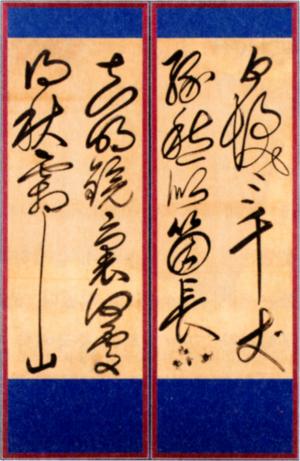 白髮三千丈
緣愁似箇長不
知明鏡裏何處
得秋霜山